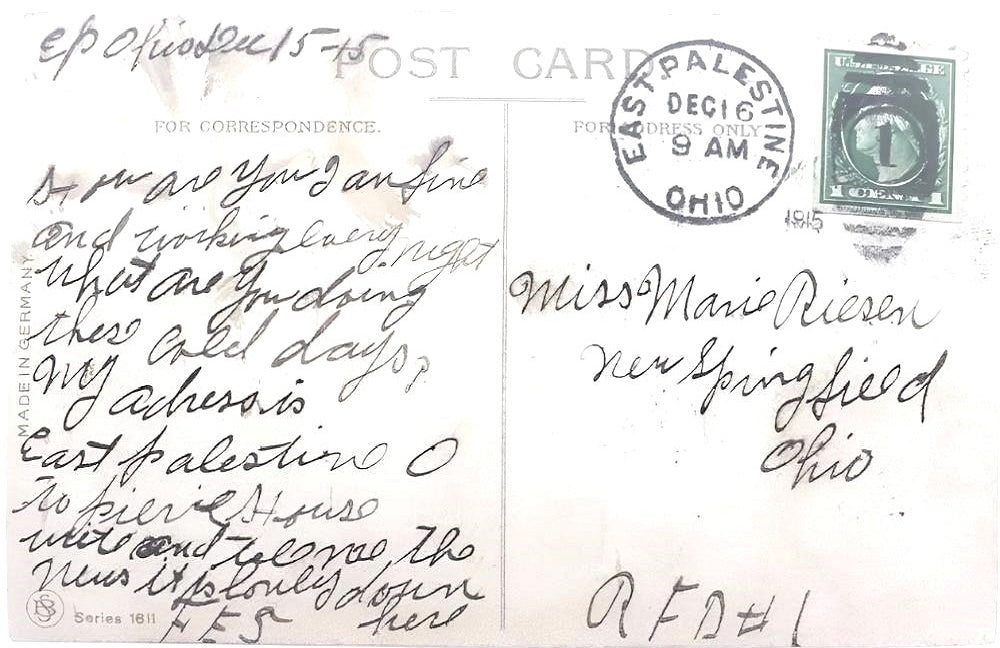 EP Ohio Dec 15-15
POST CARD
FOR CORRESPONDENCE.
FOR ADDRESS ONLY
EAST PALESTINE
DEC 16
9 AM
OHIO
1915
1 CENT 1
How are you I am fine
and working every night
what are you doing
these cold days,
My adress is
East Palestine O
to pierie House
write and tele me the
News it is lonly down
here
F E S
Miss Marie Riesen
New Springfield
Ohio
R F D # 1
MADE IN GERMANY
Series 1611